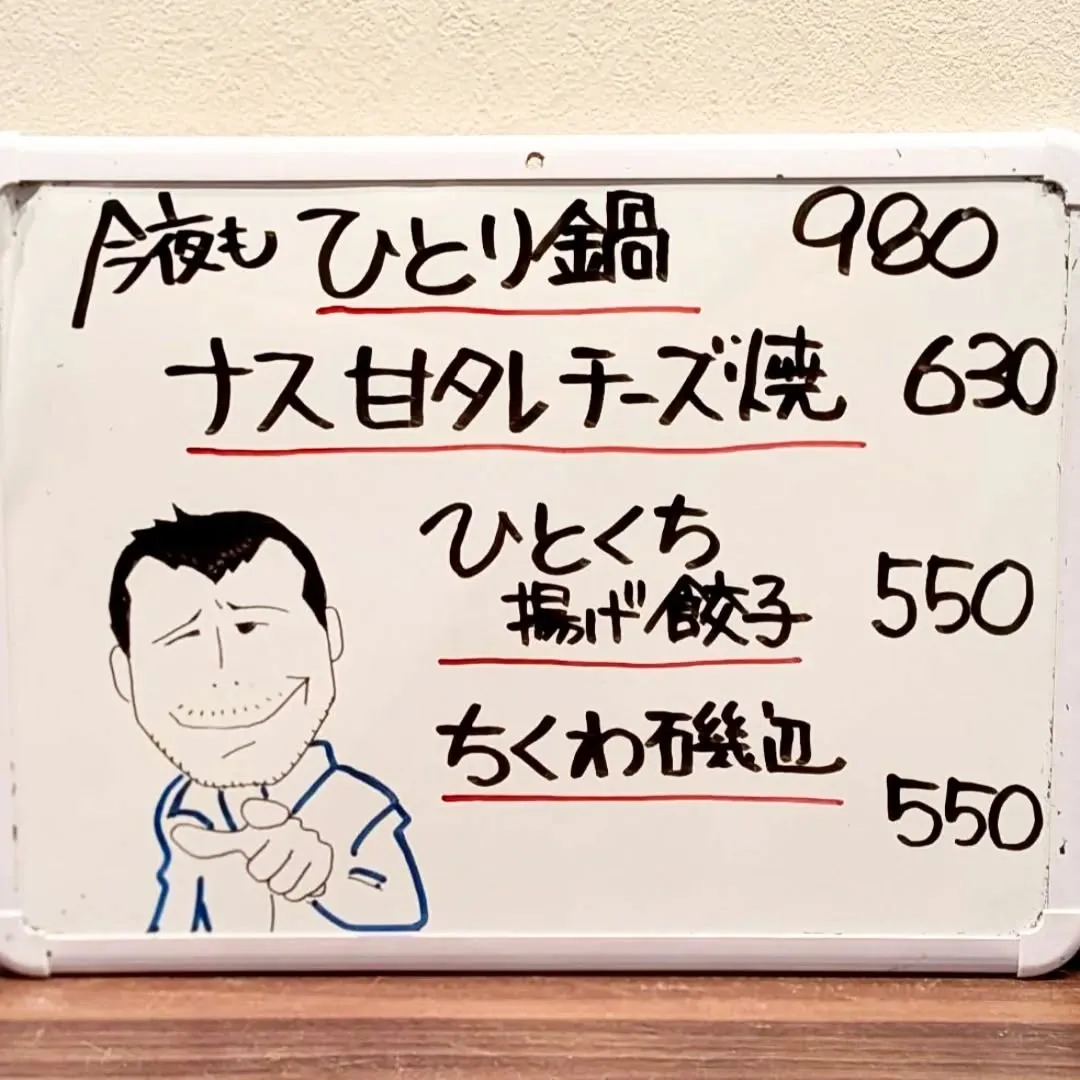 今夜も ひとり鍋 980
ナス甘タレチーズ焼 630
ひとくち
揚げ餃子 550
ちくわ磯辺
550